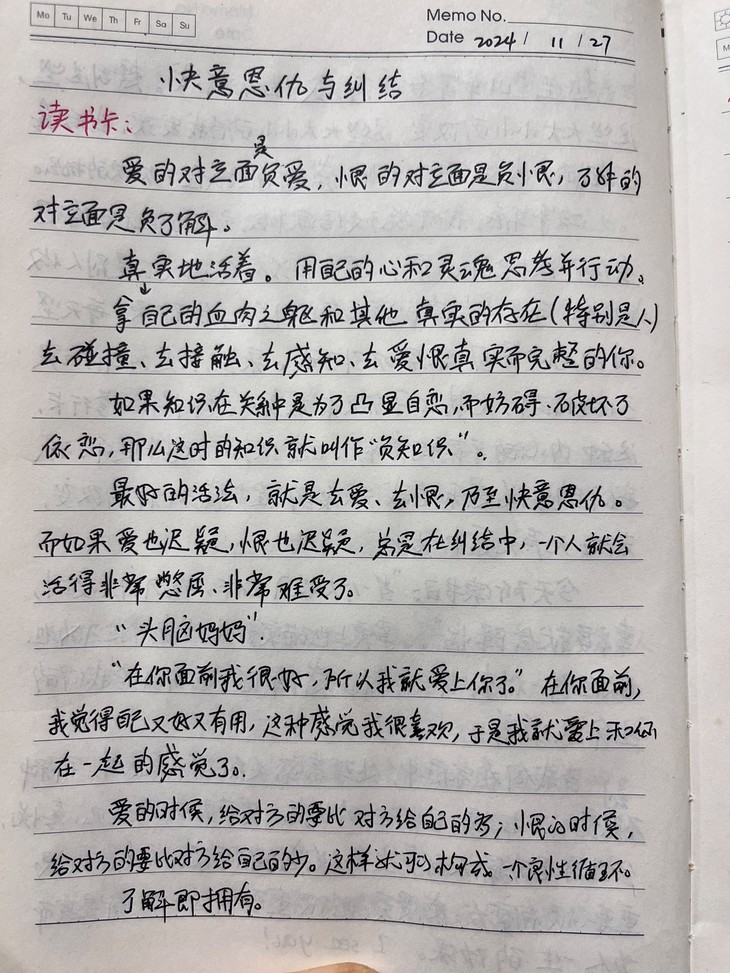 Mo Tu We Th Fr Sa Su
Memo No.
Date 2024 / 11 / 27
快意恩仇与纠结
读书卡：
爱的对立面是负爱，恨的对立面是负恨，了解的
对立面是负了解。
真实地活着。用自己的心和灵魂思考并行动。
拿自己的血肉之躯和其他真实的存在(特别是人)
去碰撞、去接触、去感知、去爱恨真实而完整的你。
如果知识在关系中是为了凸显自恋，而妨碍、破坏了
依恋，那么这时的知识就叫作“负知识”。
最好的活法，就是去爱、去恨，乃至快意恩仇。
而如果爱也迟疑，恨也迟疑，总是在纠结中，一个人就会
活得非常憋屈、非常难受了。
“头脑妈妈”.
“在你面前我很好，所以我就爱上你了。”在你面前，
我觉得自己又好又有用，这种感觉我很喜欢，于是我就爱上和你
在一起的感觉了。
爱的时候，给对方的要比对方给自己的多；恨的时候，
给对方的要比对方给自己的少。这样就可构成一个良性循环。
了解即拥有。
I see you!